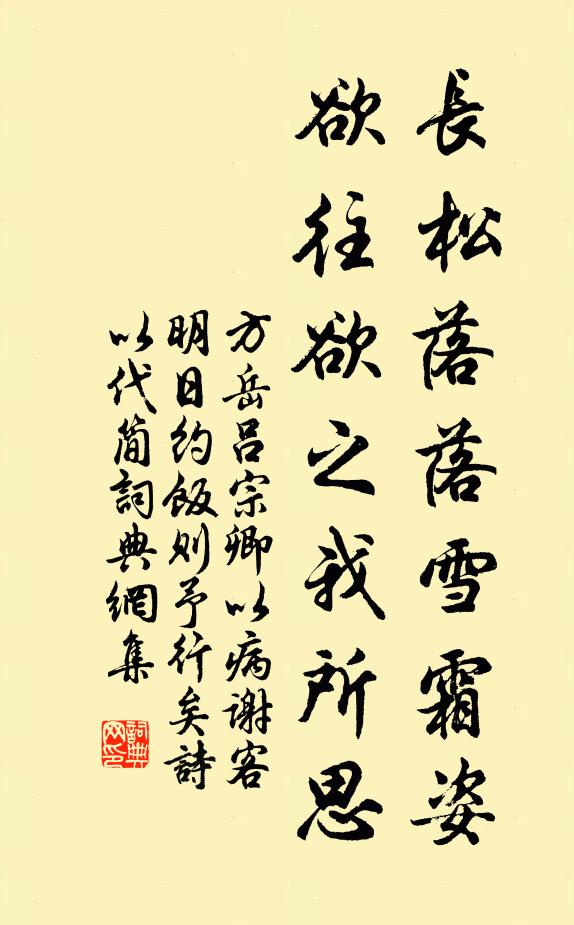 長松落落雪霜姿
欲往欲之我所思
方岳呂宗卿以病謝客
明日約飯則予行矣詩
以代簡詞典網集
詞典